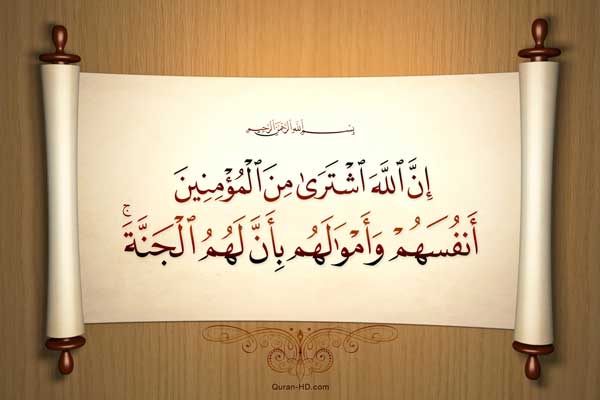 بِسْمِ ٱللَّهِ ٱلرَّحْمَٰنِ ٱلرَّحِيمِ
إِنَّ ٱللَّهَ ٱشْتَرَىٰ مِنَ ٱلْمُؤْمِنِينَ
أَنفُسَهُمْ وَأَمْوَٰلَهُم بِأَنَّ لَهُمُ ٱلْجَنَّةَ ۚ
Quran-HD.com